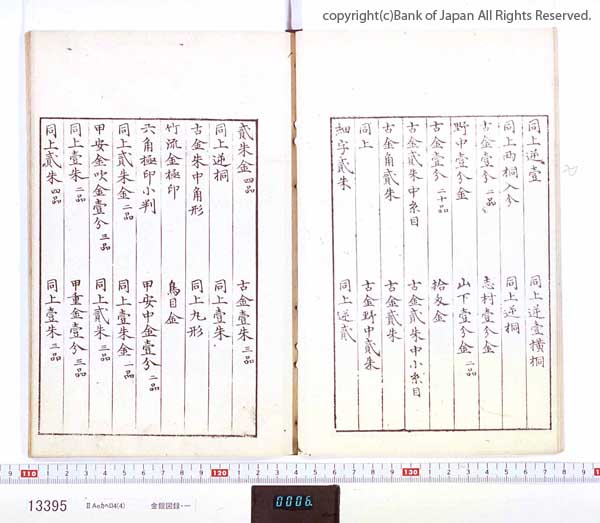 copyright(c)Bank of Japan All Rights Reserved.
同上逆壹
同上逆壹横桐
同上両桐入分
同上逆桐
古金壹分 二品
志村壹分金
野中壹分金
山下壹分金 二品
古金壹分 二十品
拾匁金
古金貳朱中糸目
古金貳朱中小糸目
古金角貳朱
古金貳朱
同上
古金野中貳朱
細字貳朱
同上逆貳
貳朱金 四品
古金壹朱 三品
同上逆桐
同上壹朱
古金朱中角形
同上九形
竹流金極印
鳥目金
六角極印小判
甲安中金壹分 二品
同上貳朱金 二品
同上壹朱金 一品
甲安金吹金壹分 三品
同上貳朱 三品
同上壹朱 二品
甲重金壹分 三品
同上貳朱 四品
同上壹朱 二品
9 110 1 2 3 4 5 6 7 8 9 120 1 2 3 4 5 6 7 8 9 130 1 2 3 4 5 6 7 8
13395
ⅡAeカヘロ4(4)
金銀図録・一
0006